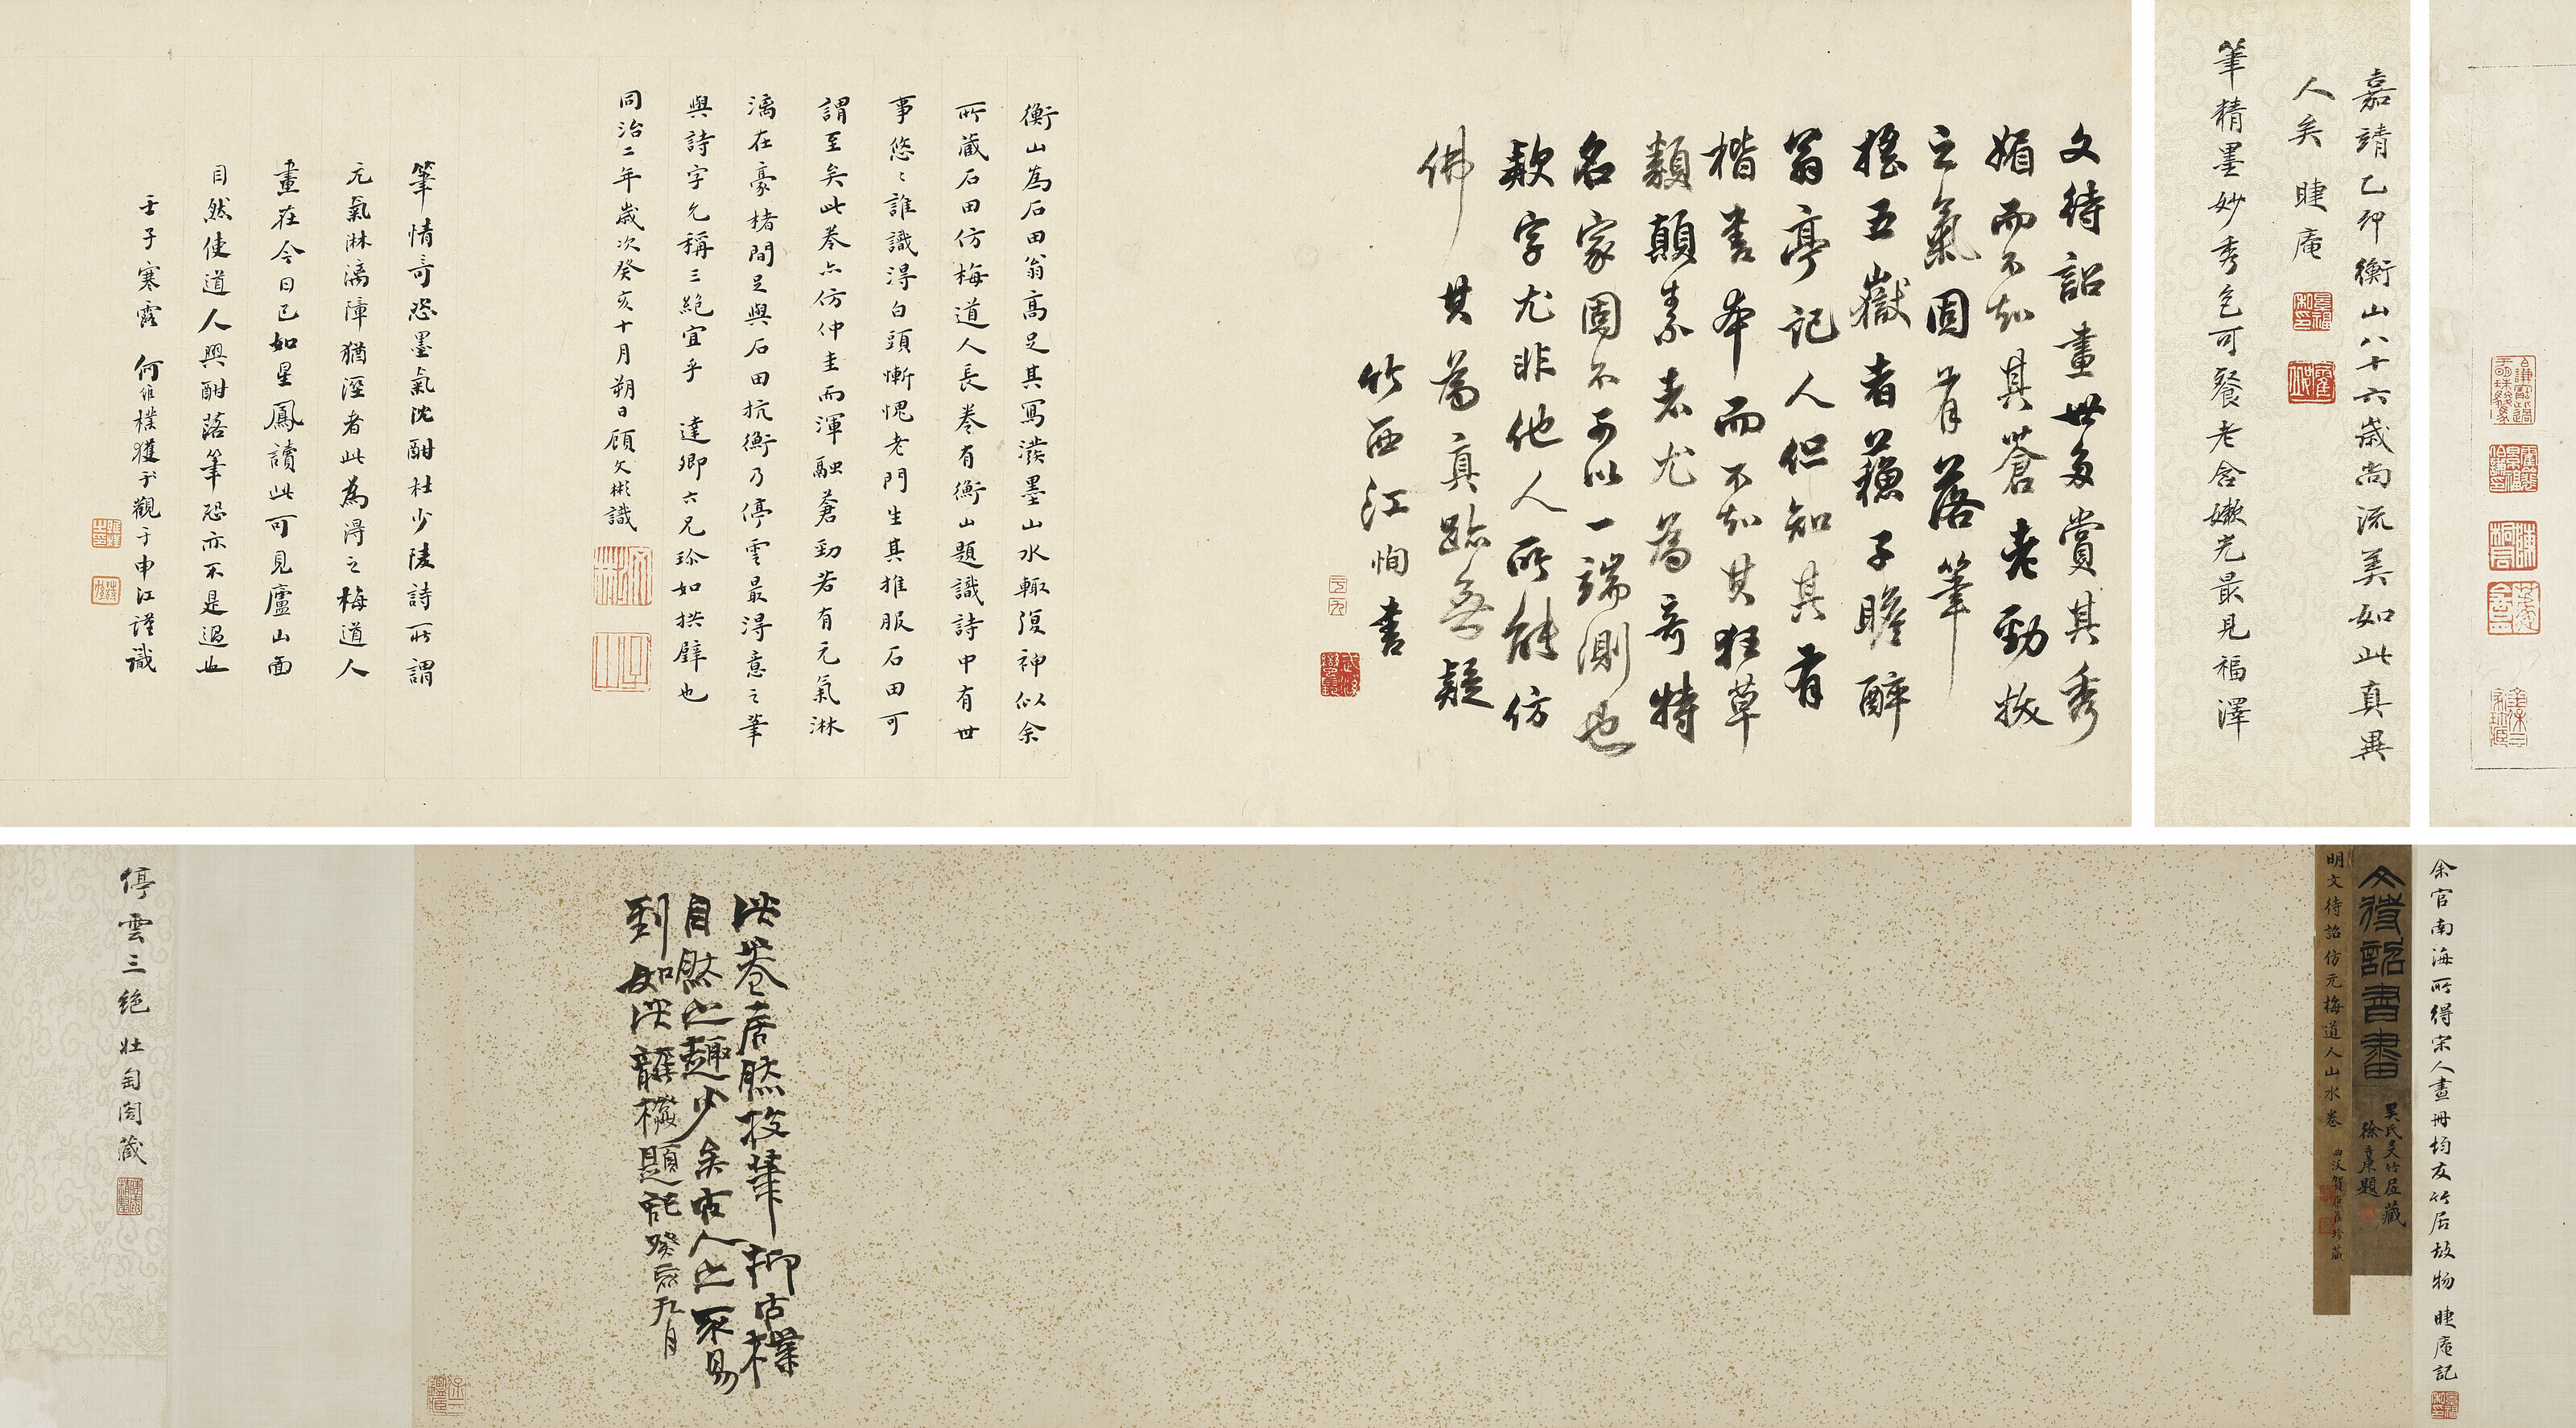 嘉靖乙卯衡山八十六歲尚流美如此真異
人矣 睫庵
筆精墨妙秀色可餐老含嫩光最見福澤
文待詔畫世多賞其秀
媚而不知其蒼老勁拔
之氣固有落筆
搖五嶽者蘓子瞻醉
翁亭記人但知其有
楷書本而不知其狂草
類顛素者尤為奇特
名家固不可以一端測也
欵字尤非他人所能仿
佛其為真跡無疑
竹西江恂書
衡山為石田翁高足其寫潑墨山水輙復神似余
所藏石田仿梅道人長卷有衡山題識詩中有世
事悠〻誰識得白頭慚愧老門生其推服石田可
謂至矣此卷亦仿仲圭而渾融蒼勁若有元氣淋
漓在豪楮間足與石田抗衡乃停雲最得意之筆
與詩字允稱三絕宜乎 達卿六兄珍如拱璧也
同治二年歲次癸亥十月朔日顧文彬識
筆情奇恣墨氣沈酣杜少陵詩所謂
元氣淋漓障猶溼者此為得之梅道人
畫在今日已如星鳳讀此可見廬山面
目然使道人興酣落筆恐亦不是過也
壬子寒露 何維樸獲觀于申江謹識
余官南海所得宋人畫冊均友竹居故物 睫庵記
文待詔書畫
吳氏友竹居藏
徐三庚題
明文待詔仿元梅道人山水卷
此卷居然放筆抑古樸
自然之趣少矣古人之不易
到如此 題記癸亥九月
停雲三絕 壯匋閣藏